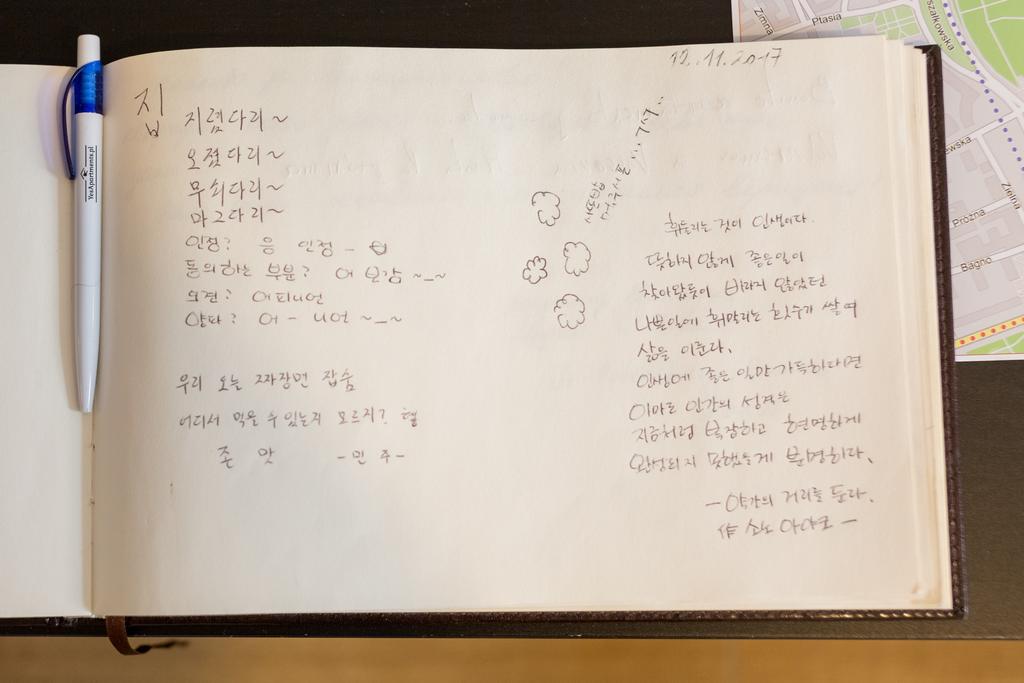 12.11.2017
집
지렸다리~
오졌다리~
무쇠다리~
마그다리~
인정? 응 인정-
동의하는 부분? 어 보감~_~
의견? 어피니언
양파? 어-니언~_~
우리 오늘 짜장면 잡숨
어디서 먹을 수 있는지 모르지?
존 맛 -민주-
휘둘리는 것이 인생이다.
뜻하지 않게 좋은일이
찾아왔듯이 바라지 않았던
나쁜일에 휘말리는 횟수가 쌓여
삶을 이룬다.
인생에 좋은 일만 가득하다면
이마로 인간의 성격은
지금처럼 복잡하고 현명하게
완성되지 못했을게 분명하다.
-약간의 거리를 둔다.
作 소노 아야코-
YesApartments.pl
Zimna
Ptasia
szałkowska
ewska
Zielna
Próżna
Bagno